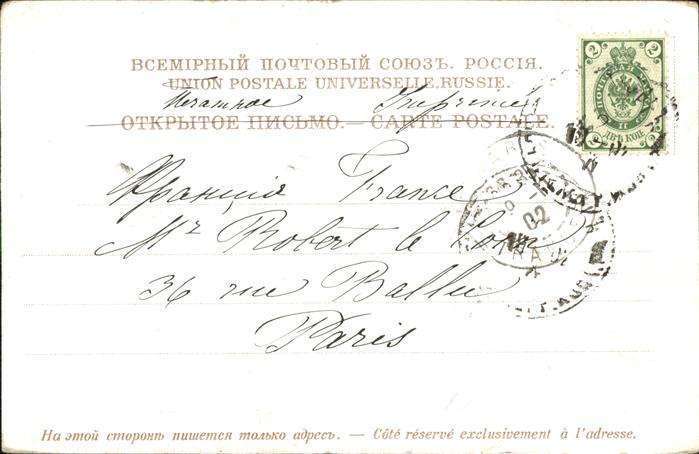 ВСЕМІРНЫЙ ПОЧТОВЫЙ СОЮЗЪ. РОССІЯ.
UNION POSTALE UNIVERSELLE. RUSSIE.
Печатное Imprimé
ОТКРЫТОЕ ПИСЬМО. — CARTE POSTALE.
2 2
ДВѢ КОП.
02
Франція France
Mr Robert le
36 rue Ballu
Paris
На этой сторонѣ пишется только адресъ. — Côté réservé exclusivement à l'adresse.